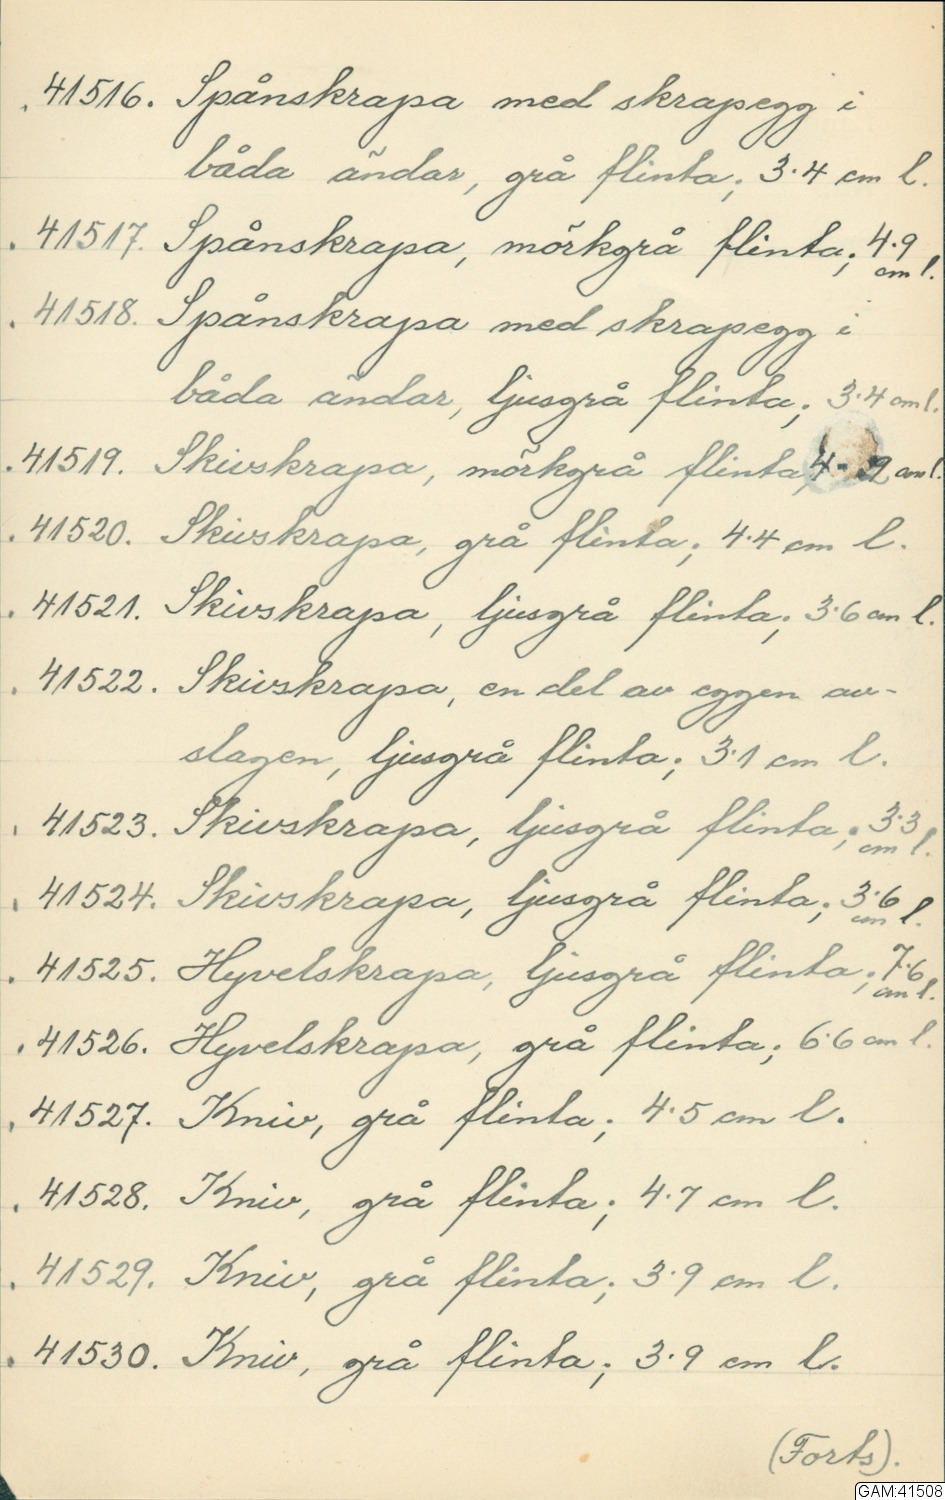 41516. Spånskrapa med skrapegg i
båda ändar, grå flinta; 3.4 cm l.
41517. Spånskrapa, mörkgrå flinta; 4.9
cm l.
41518. Spånskrapa med skrapegg i
båda ändar, ljusgrå flinta; 3.4 cm l.
41519. Skivskrapa, mörkgrå flinta; 4.2 cm l.
41520. Skivskrapa, grå flinta; 4.4 cm l.
41521. Skivskrapa, ljusgrå flinta; 3.6 cm l.
41522. Skivskrapa, en del av eggen av-
slagen, ljusgrå flinta; 3.1 cm l.
41523. Skivskrapa, ljusgrå flinta; 3.3
cm l.
41524. Skivskrapa, ljusgrå flinta; 3.6
cm l.
41525. Hyvelskrapa, ljusgrå flinta; 7.6
cm l.
41526. Hyvelskrapa, grå flinta; 6.6 cm l.
41527. Kniv, grå flinta; 4.5 cm l.
41528. Kniv, grå flinta; 4.7 cm l.
41529. Kniv, grå flinta; 3.9 cm l.
41530. Kniv, grå flinta; 3.9 cm l.
(Forts).
GAM:41508